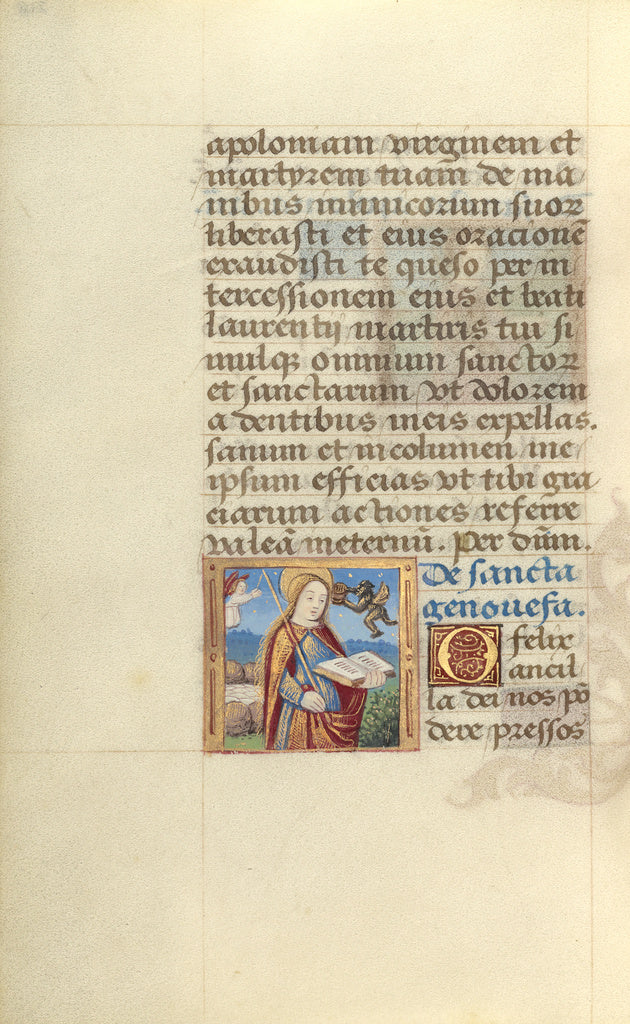 apoloniam virginem et
martyrem tuam̄ de ma
nibus inimicorum suoꝝ
liberasti et eius oracionē
exaudisti te queso per in
tercessionem eius et beati
laurentij martiris tui si
mulqꝫ omnium sanctoꝝ
et sanctarum vt dolorem
a dentibus meis expellas.
sanum et incolumen me
ipsum efficias vt tibi gra
ciarum actiones referre
valeā ineternū. Per dūm.
De sancta
genouefa.
O felix
ancil
la dei nos pō
dere pressos